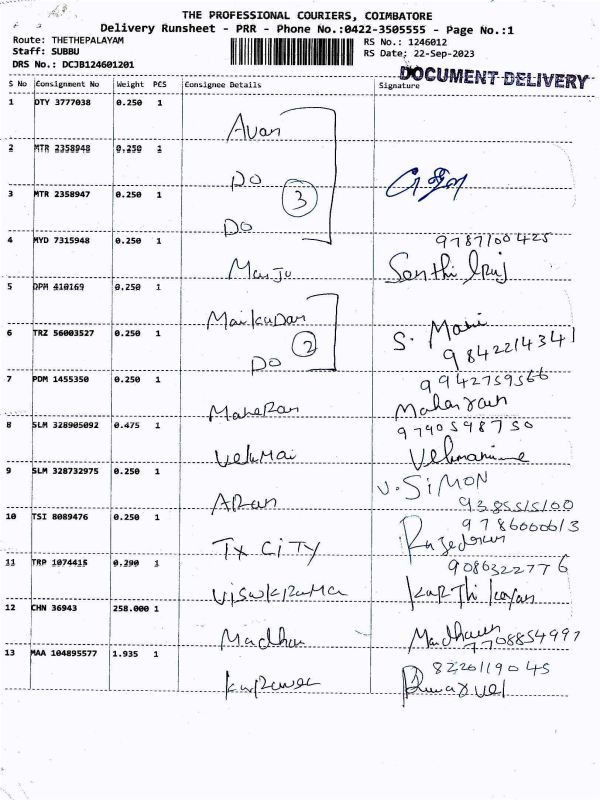 THE PROFESSIONAL COURIERS, COIMBATORE
Delivery Runsheet - PRR - Phone No.:0422-3505555 - Page No.:1
Route: THETHEPALAYAM
RS No.: 1246012
Staff: SUBBU
RS Date: 22-Sep-2023
DRS No.: DCJB124601201
DOCUMENT DELIVERY
S No Consignment No Weight PCS Consignee Details Signature
1 DTY 3777038 0.250 1
Avan
2 MTR 2358948 0.250 1
DO
3
3 MTR 2358947 0.250 1
DO
4 MYD 7315948 0.250 1
9787100425
Manju
5 DPM 410169 0.250 1
Maikudan
S. Mani
6 TRZ 56003527 0.250 1
2
9842214341
DO
7 PDM 1455350 0.250 1
9942759566
8 SLM 328905092 0.475 1
9790598750
Velmai
9 SLM 328732975 0.250 1
V. SIMON
9385515100
10 TSI 8089476 0.250 1
9786000613
TX CITY
11 TRP 1074415 0.290 1
9080322776
12 CHN 36943 258.000 1
Madhan
7708854997
13 MAA 104895577 1.935 1
8220119045